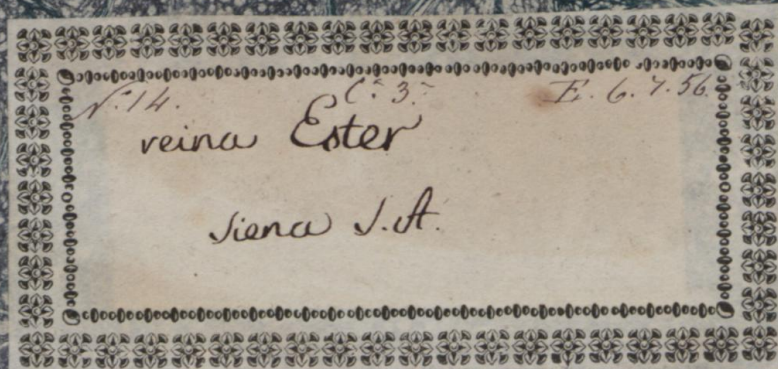 N.º 14. C. 3.ª E. 6.7.56.
reina Ester
Siena S.A.